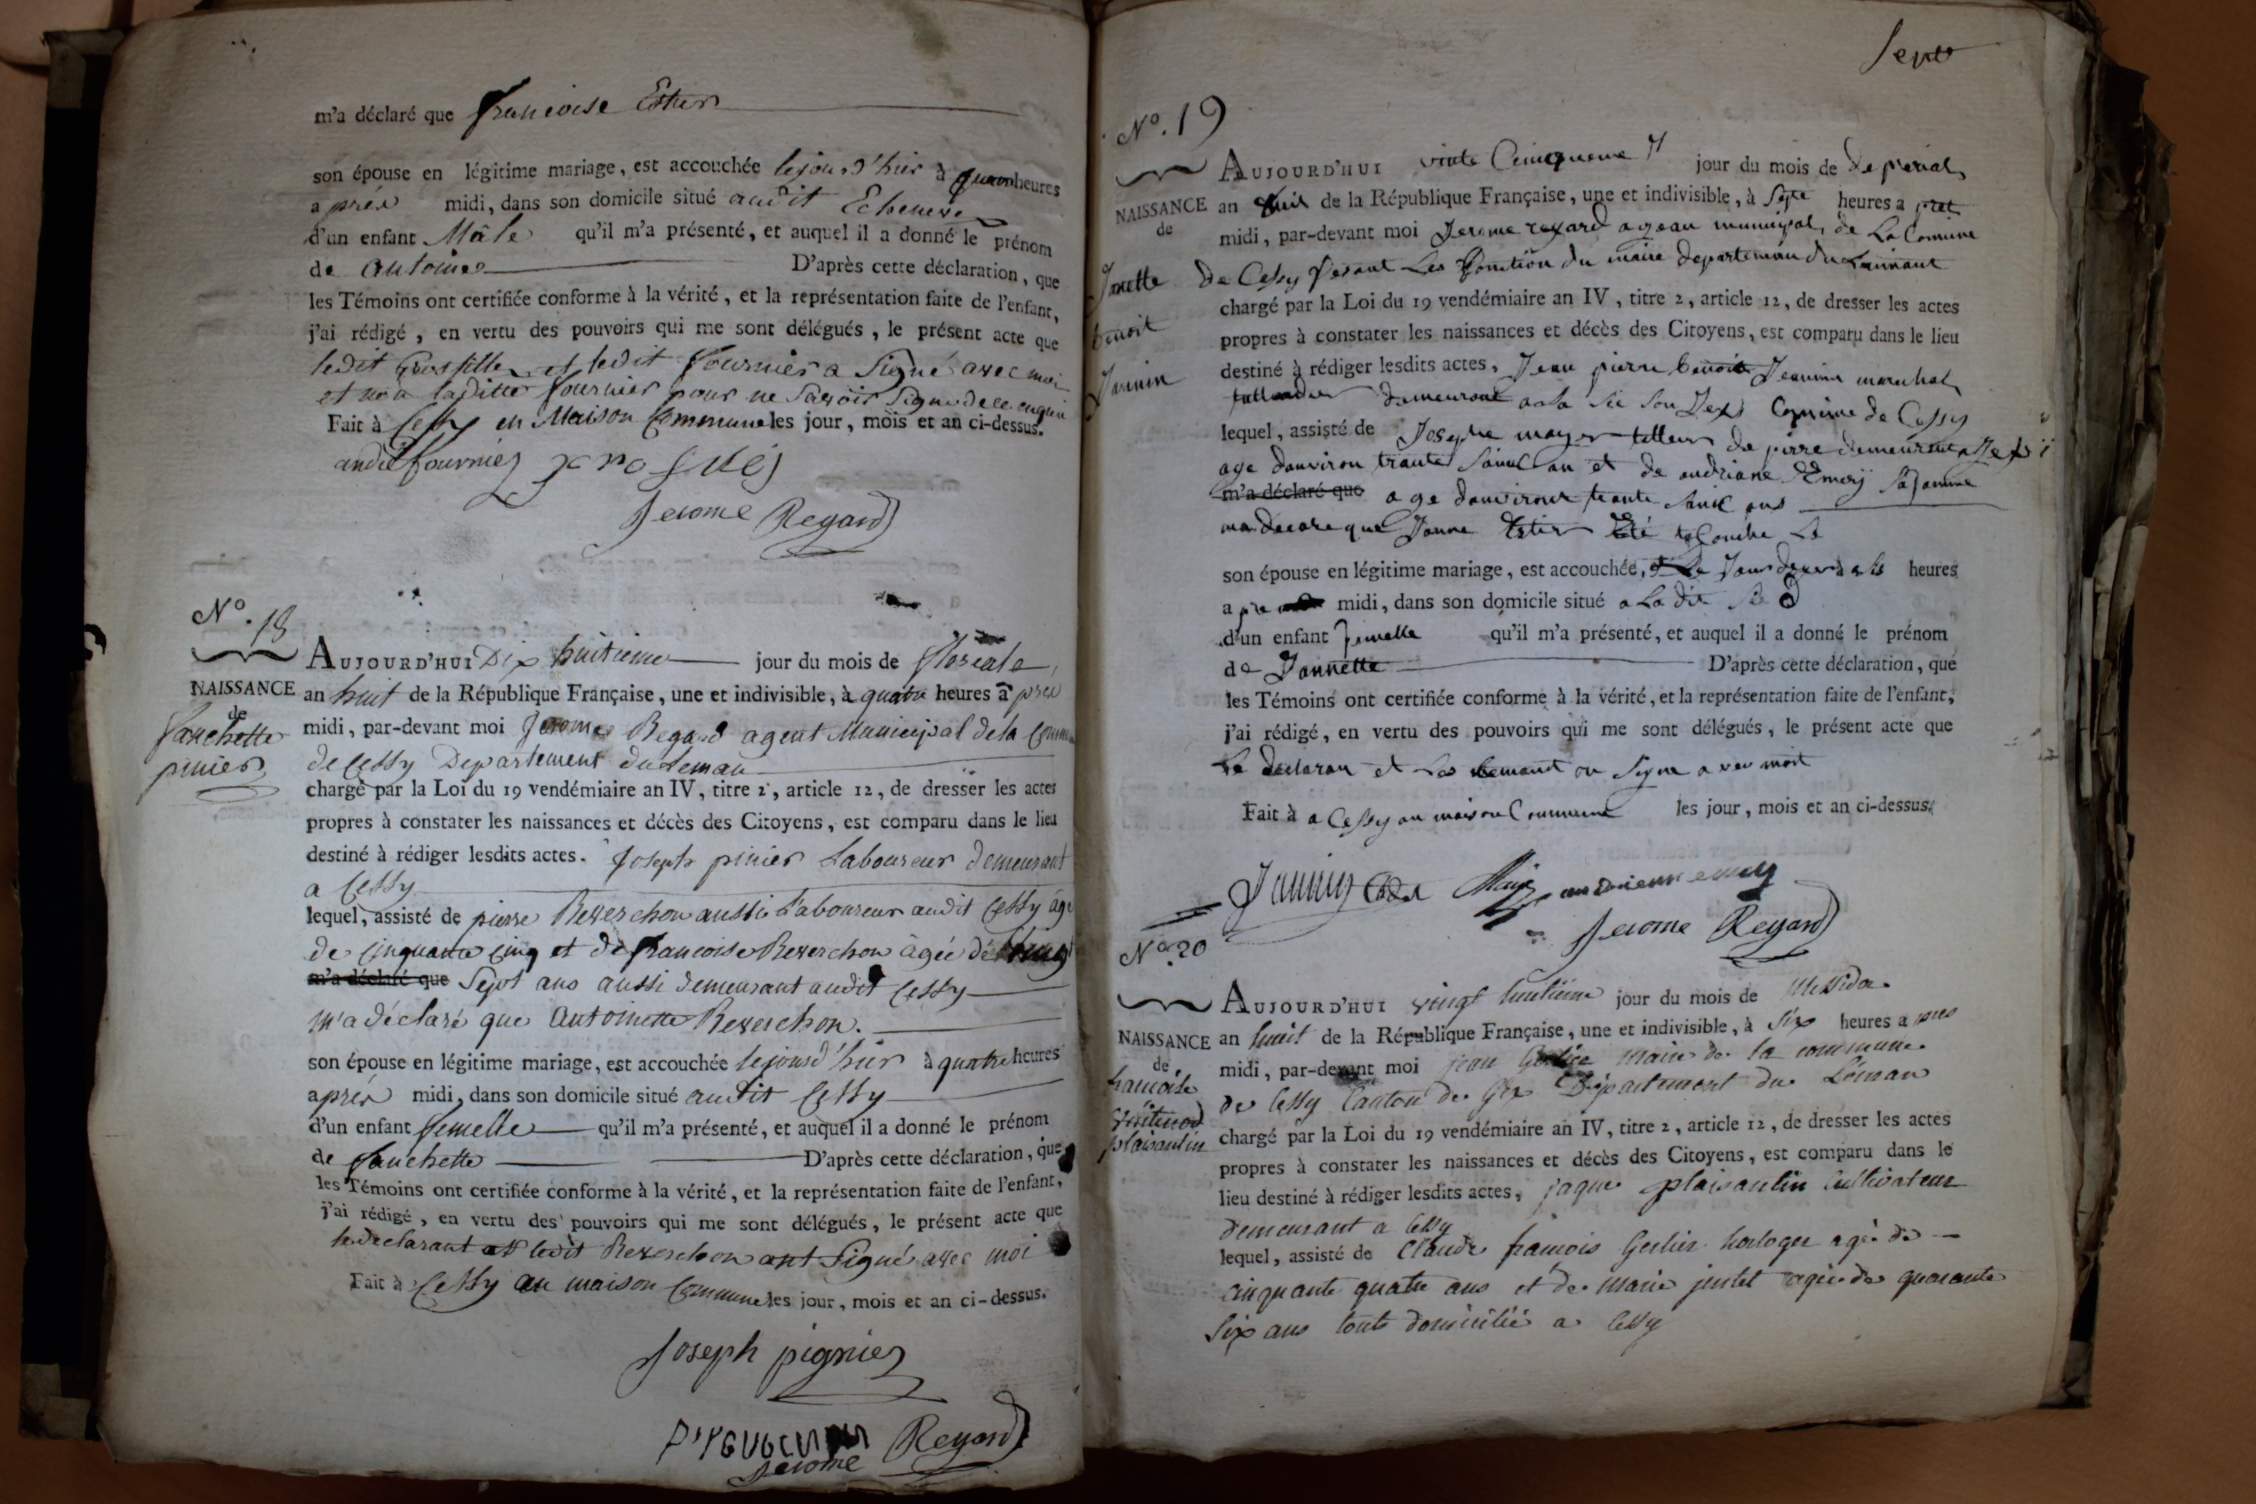 m'a déclaré que francoise Estier
son épouse en légitime mariage, est accouchée lejourd'hier à quatre heures
a prés midi, dans son domicile situé audit Echenevex
d'un enfant Mâle qu'il m'a présenté, et auquel il a donné le prénom
de antoine D'après cette déclaration, que
les Témoins ont certifiée conforme à la vérité, et la représentation faite de l'enfant,
j'ai rédigé, en vertu des pouvoirs qui me sont délégués, le présent acte que
ledit et ledit fournier a Signé avec moi
et non laditte fournier pour ne Savoir Signé de ce enquis
Fait à Cessy en Maison Commune les jour, mois et an ci-dessus.
andré fournier
Jerome Regard
N°. 18
AUJOURD'HUI Dix huitieme jour du mois de floreale
NAISSANCE
de
fanchette
pinier
an huit de la République Française, une et indivisible, à quatre heures a prés
midi, par-devant moi Jerome Regard agent Municipal de la Commune
de Cessy Departement du Leman
chargé par la Loi du 19 vendémiaire an IV, titre 2, article 12, de dresser les actes
propres à constater les naissances et décès des Citoyens, est comparu dans le lieu
destiné à rédiger lesdits actes. Joseph pinier Laboureur demeurant
a Cessy
lequel, assisté de pierre Reverchon aussi Laboureur audit Cessy âgé
de Cinquante Cinq et de francoise Reverchon âgée de vingt
m'a déclaré que Sept ans aussi demeurant audit Cessy
m'a déclaré que antoinette Reverchon.
son épouse en légitime mariage, est accouchée lejourd'hier à quatre heures
aprés midi, dans son domicile situé audit Cessy
d'un enfant femelle qu'il m'a présenté, et auquel il a donné le prénom
de fanchette D'après cette déclaration, que
les Témoins ont certifiée conforme à la vérité, et la représentation faite de l'enfant,
j'ai rédigé, en vertu des pouvoirs qui me sont délégués, le présent acte que
le declarant et ledit Reverchon ont Signé avec moi
Fait à Cessy an maison Commune les jour, mois et an ci-dessus.
Joseph pignier
Jerome Regard
N°. 19
AUJOURD'HUI vinte Cinqueme jour du mois de de prerial
NAISSANCE
de
Janette
benoit
Jannin
an huit de la République Française, une et indivisible, à Sept heures a pret
midi, par-devant moi Jerome regard agean municipal de La Comune
de Cessy fesant Les fonction du maire departeman du Laimant
chargé par la Loi du 19 vendémiaire an IV, titre 2, article 12, de dresser les actes
propres à constater les naissances et décès des Citoyens, est comparu dans le lieu
destiné à rédiger lesdits actes, Jean pierre benoit Jeannin marchal
demeurant Comune de Cessy
lequel, assisté de Josephe mayer talleur de pirre demeurant
age danviron trante Sainc an et de andriane Emery
m'a déclaré que age danviron trante Sainc ans
ma declare que Janne Estier
son épouse en légitime mariage, est accouchée, heures
a pre midi, dans son domicile situé a La dit
d'un enfant femelle qu'il m'a présenté, et auquel il a donné le prénom
de Jannette D'après cette déclaration, que
les Témoins ont certifiée conforme à la vérité, et la représentation faite de l'enfant,
j'ai rédigé, en vertu des pouvoirs qui me sont délégués, le présent acte que
Le declaran et Les temant on Signe avec moit
Fait à a Cessy an maison Commune les jour, mois et an ci-dessus.
Jannin
Jerome Regard
N°. 20
AUJOURD'HUI vingt huitieme jour du mois de Messidor
NAISSANCE
de
francoise
plaisantin
an huit de la République Française, une et indivisible, à Six heures a pres
midi, par-devant moi jean maire de la commune
de Cessy Canton de Gex Département du Léman
chargé par la Loi du 19 vendémiaire an IV, titre 2, article 12, de dresser les actes
propres à constater les naissances et décès des Citoyens, est comparu dans le
lieu destiné à rédiger lesdits actes, jaque plaisantin Cultivateur
demeurant a Cessy
lequel, assisté de Claude francois Gerlier horloger agé de
cinquante quatre ans et de marie jentet agée de quarante
Six ans touts domicilié a Cessy